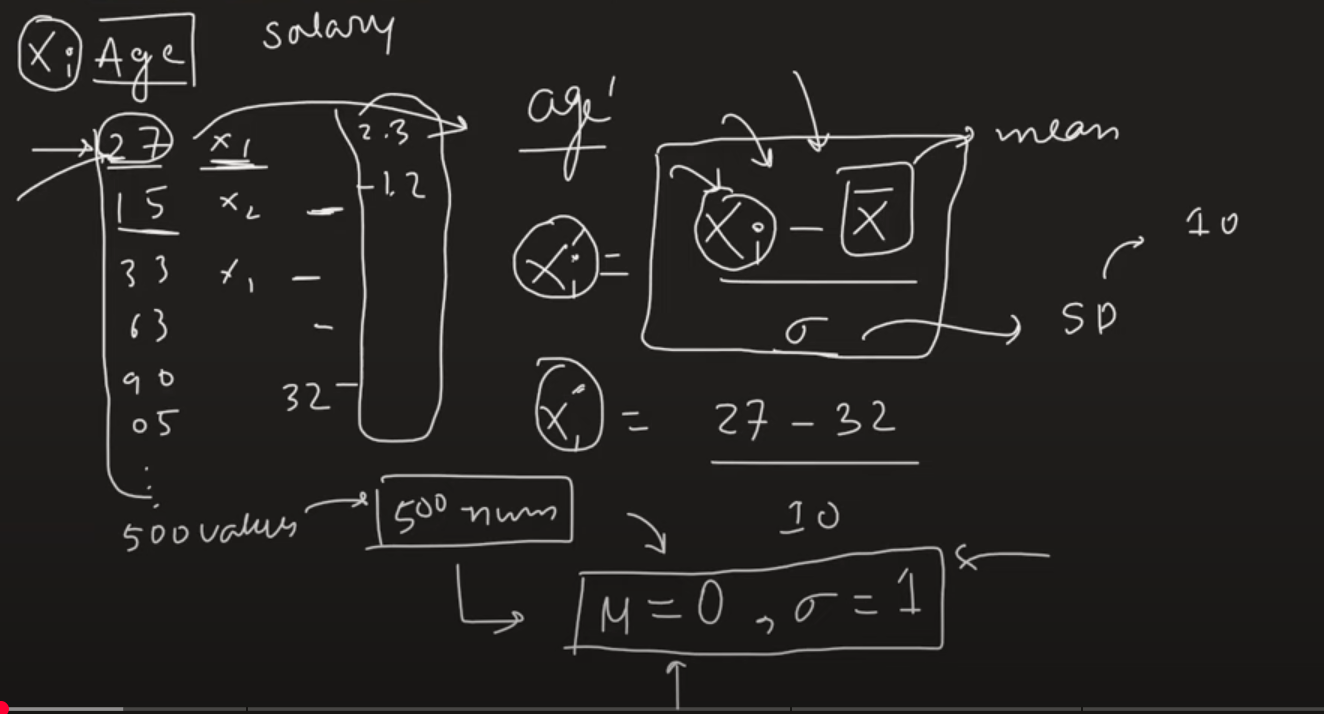 Xi Age salary
27 x₁ 2.3
15 x₂ - -1.2
33 x₁ -
63 -
90
32 -
05
⋮
500 values
500 nums
age'
Xi' = Xi - X̄
σ
mean
SD
10
Xi' = 27 - 32
10
μ = 0 , σ = 1